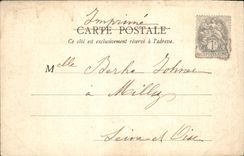 Imprimé
CARTE POSTALE
Ce côté est exclusivement réservé à l'adresse.
Melle Berthe
à Milly
Seine et Oise